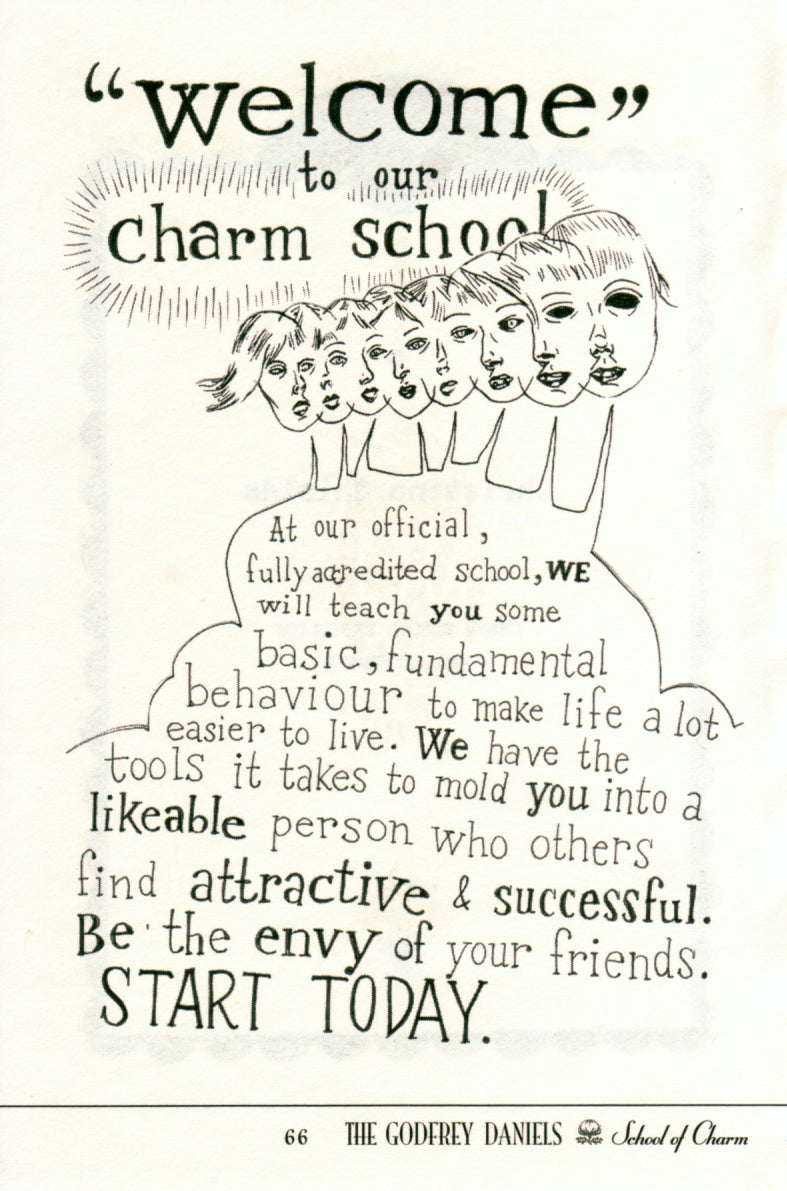 “welcome”
to our
charm school
At our official,
fully accredited school, WE
will teach you some
basic, fundamental
behaviour to make life a lot
easier to live. We have the
tools it takes to mold you into a
likeable person who others
find attractive & successful.
Be the envy of your friends.
START TODAY.
66 THE GODFREY DANIELS School of Charm